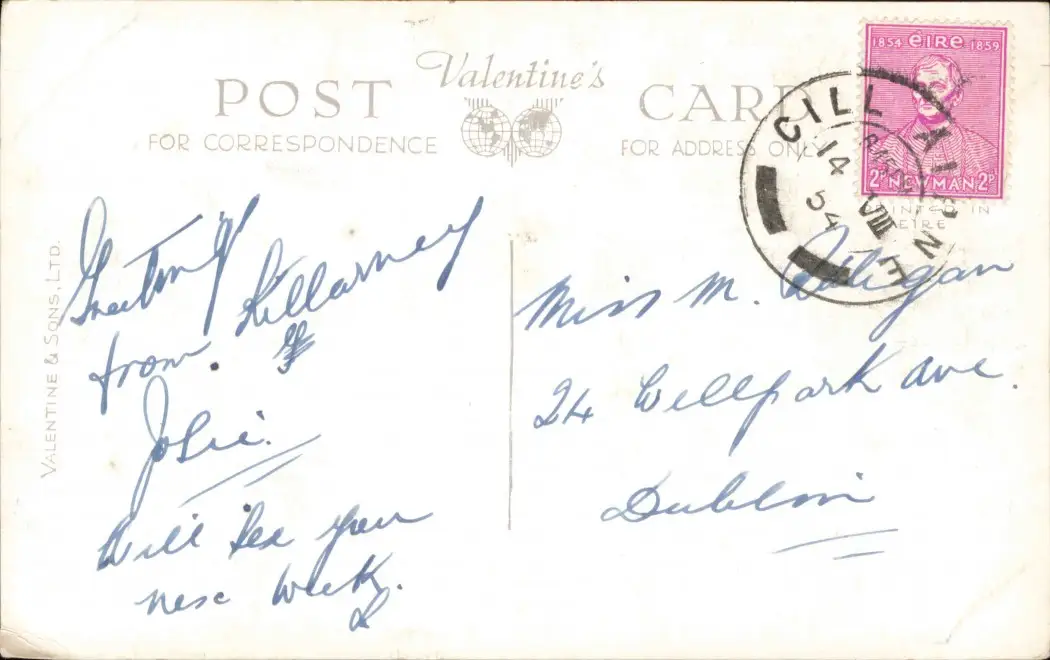 Valentine's
POST CARD
FOR CORRESPONDENCE
FOR ADDRESS ONLY
1854 éire 1859
2P NEWMAN 2P
CILL AIRNE
14 VIII
54
PRINTED IN
EIRE
VALENTINE & SONS, LTD.
Greetings
from Killarney
Josie.
Will see you
nesc week.
Miss M.
24 Wellpark ave.
Dublin